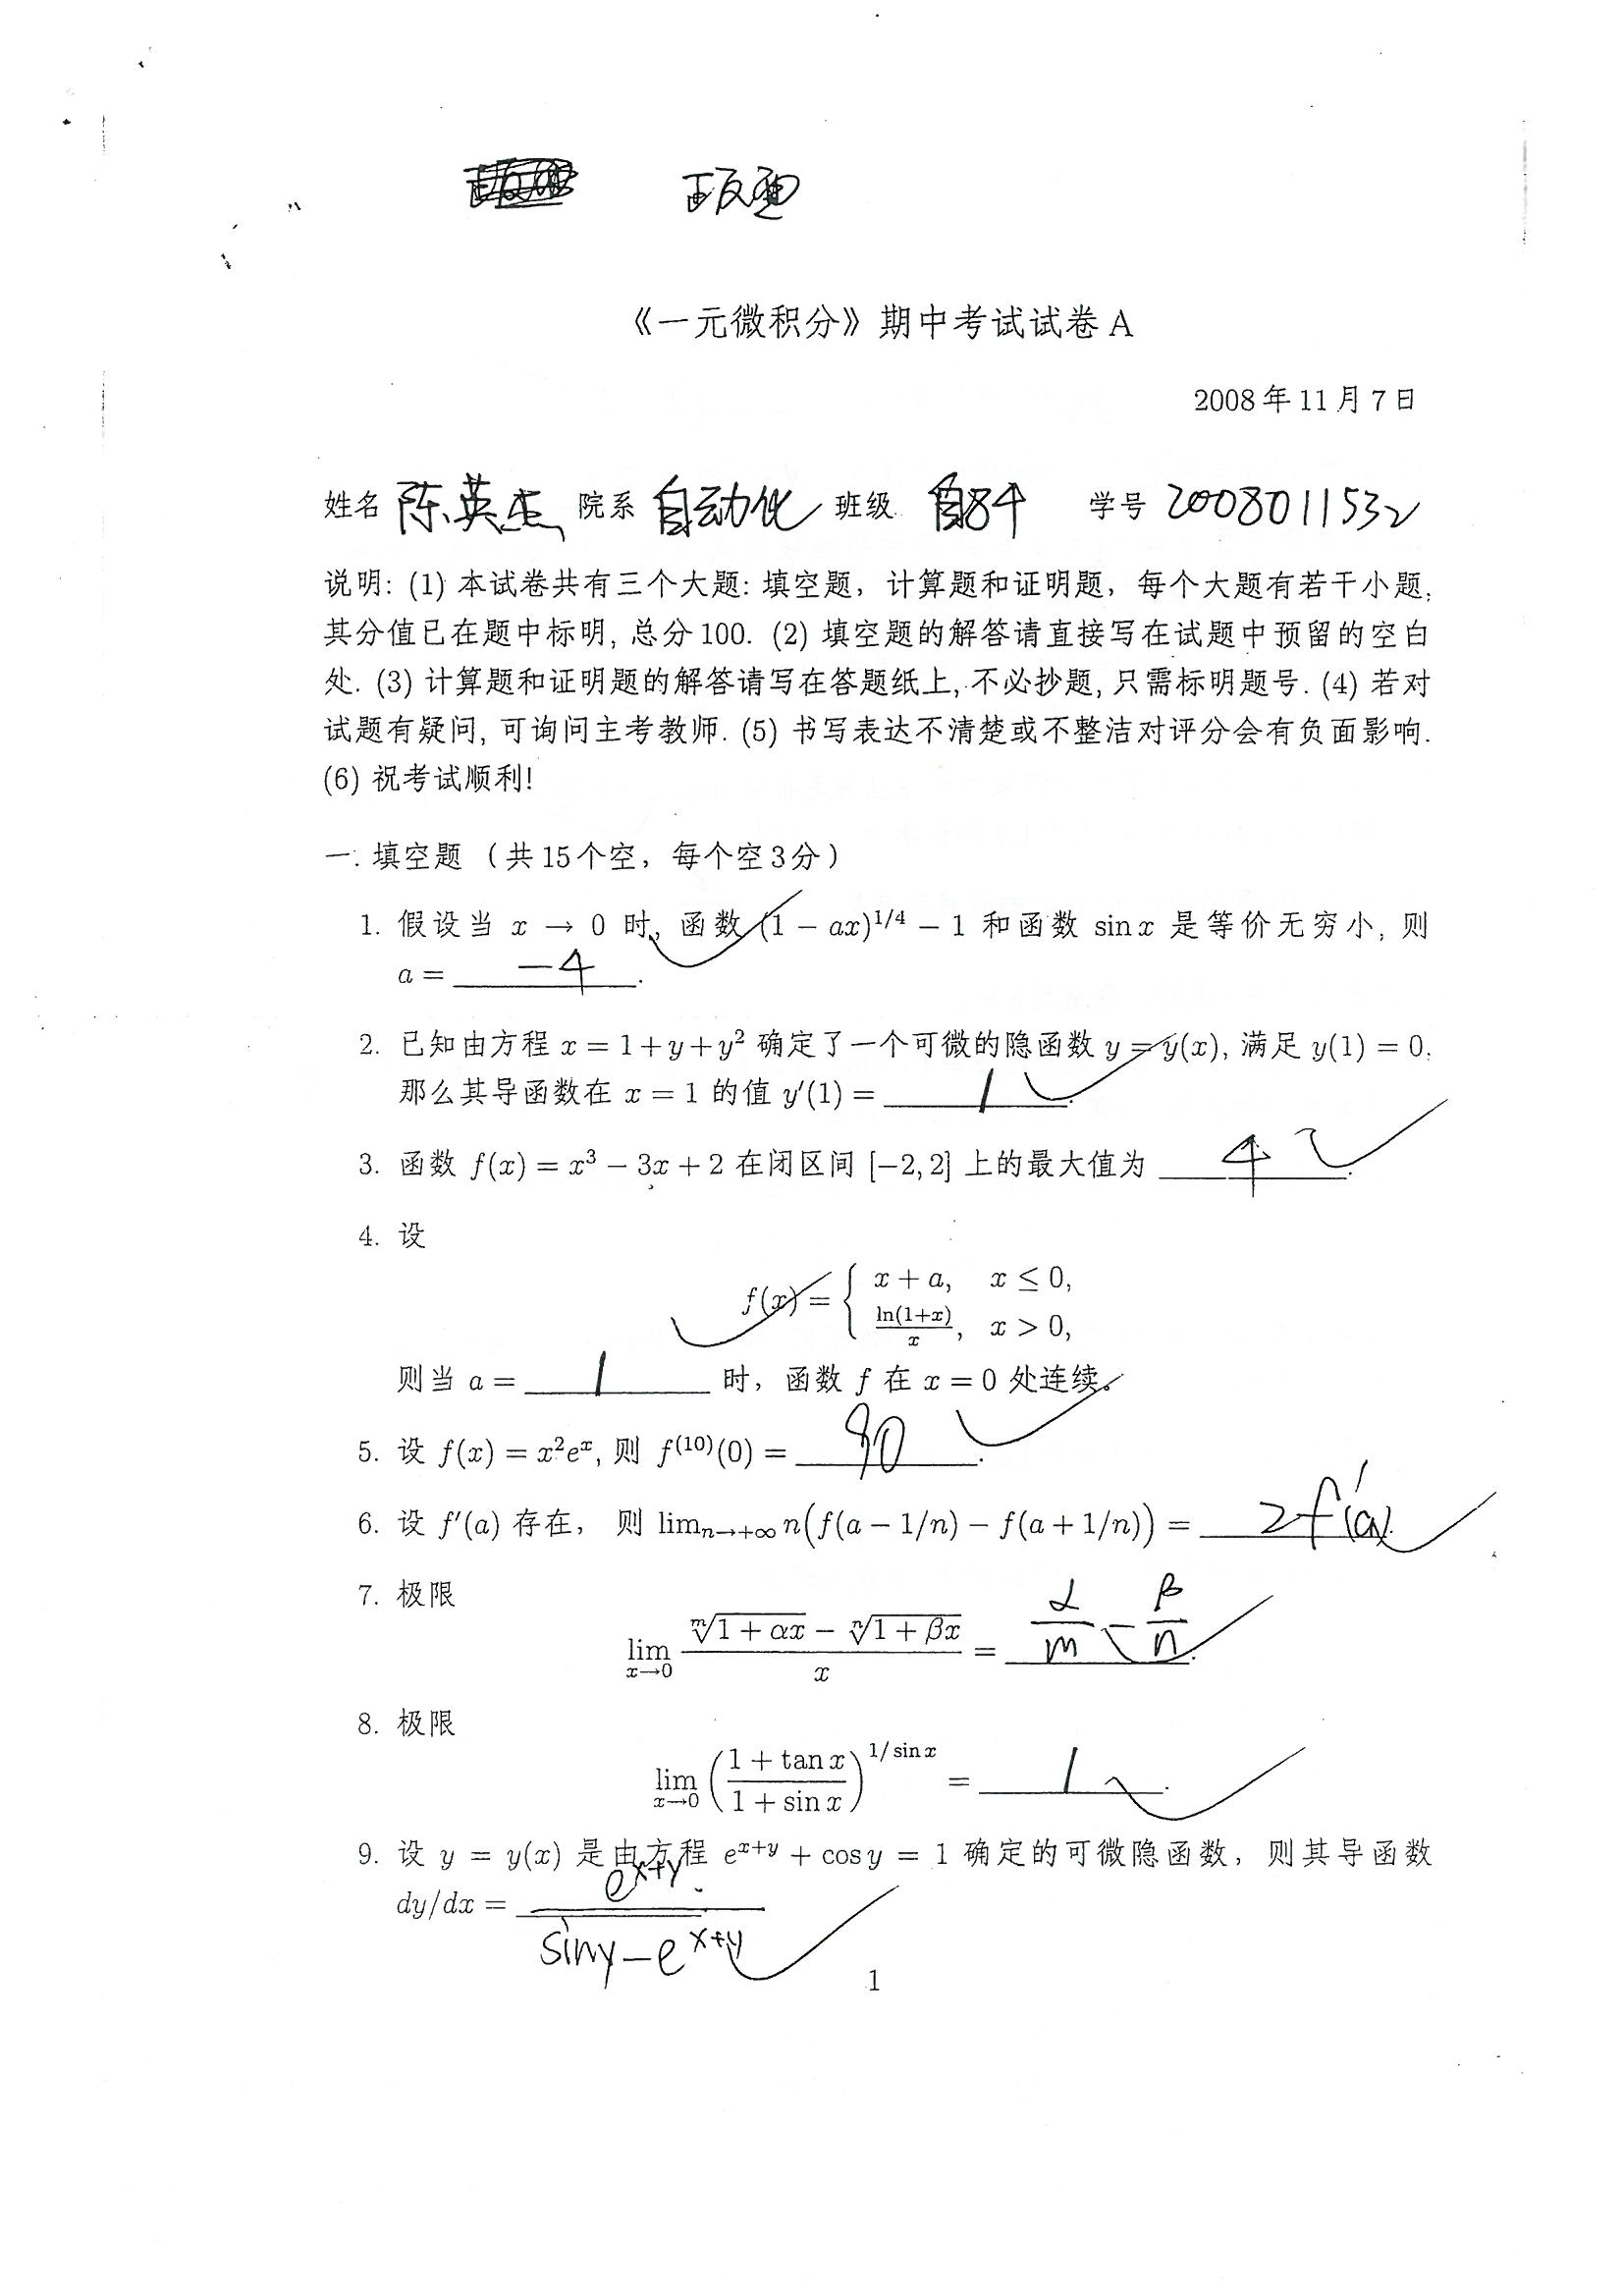 《一元微积分》期中考试试卷 A
2008 年 11 月 7 日
姓名 陈英杰 院系 自动化 班级 自84 学号 2008011532
说明: (1) 本试卷共有三个大题: 填空题, 计算题和证明题, 每个大题有若干小题,
其分值已在题中标明, 总分 100. (2) 填空题的解答请直接写在试题中预留的空白
处. (3) 计算题和证明题的解答请写在答题纸上, 不必抄题, 只需标明题号. (4) 若对
试题有疑问, 可询问主考教师. (5) 书写表达不清楚或不整洁对评分会有负面影响.
(6) 祝考试顺利!
一. 填空题 (共 15 个空, 每个空 3 分)
1. 假设当 x → 0 时, 函数 (1 − ax)^{1/4} − 1 和函数 sin x 是等价无穷小, 则
a = −4.
2. 已知由方程 x = 1 + y + y² 确定了一个可微的隐函数 y = y(x), 满足 y(1) = 0.
那么其导函数在 x = 1 的值 y′(1) = 1.
3. 函数 f(x) = x³ − 3x + 2 在闭区间 [−2, 2] 上的最大值为 4.
4. 设
f(x) = { x + a, x ≤ 0,
ln(1+x)/x, x > 0,
则当 a = 1 时, 函数 f 在 x = 0 处连续.
5. 设 f(x) = x²eˣ, 则 f^{(10)}(0) = 90.
6. 设 f′(a) 存在, 则 lim_{n→+∞} n(f(a − 1/n) − f(a + 1/n)) = 2f′(a).
7. 极限
lim_{x→0} (ᵐ√(1 + αx) − ⁿ√(1 + βx))/x = α/m − β/n.
8. 极限
lim_{x→0} ((1 + tan x)/(1 + sin x))^{1/sin x} = 1.
9. 设 y = y(x) 是由方程 e^{x+y} + cos y = 1 确定的可微隐函数, 则其导函数
dy/dx = e^{x+y}/(sin y − e^{x+y})
1